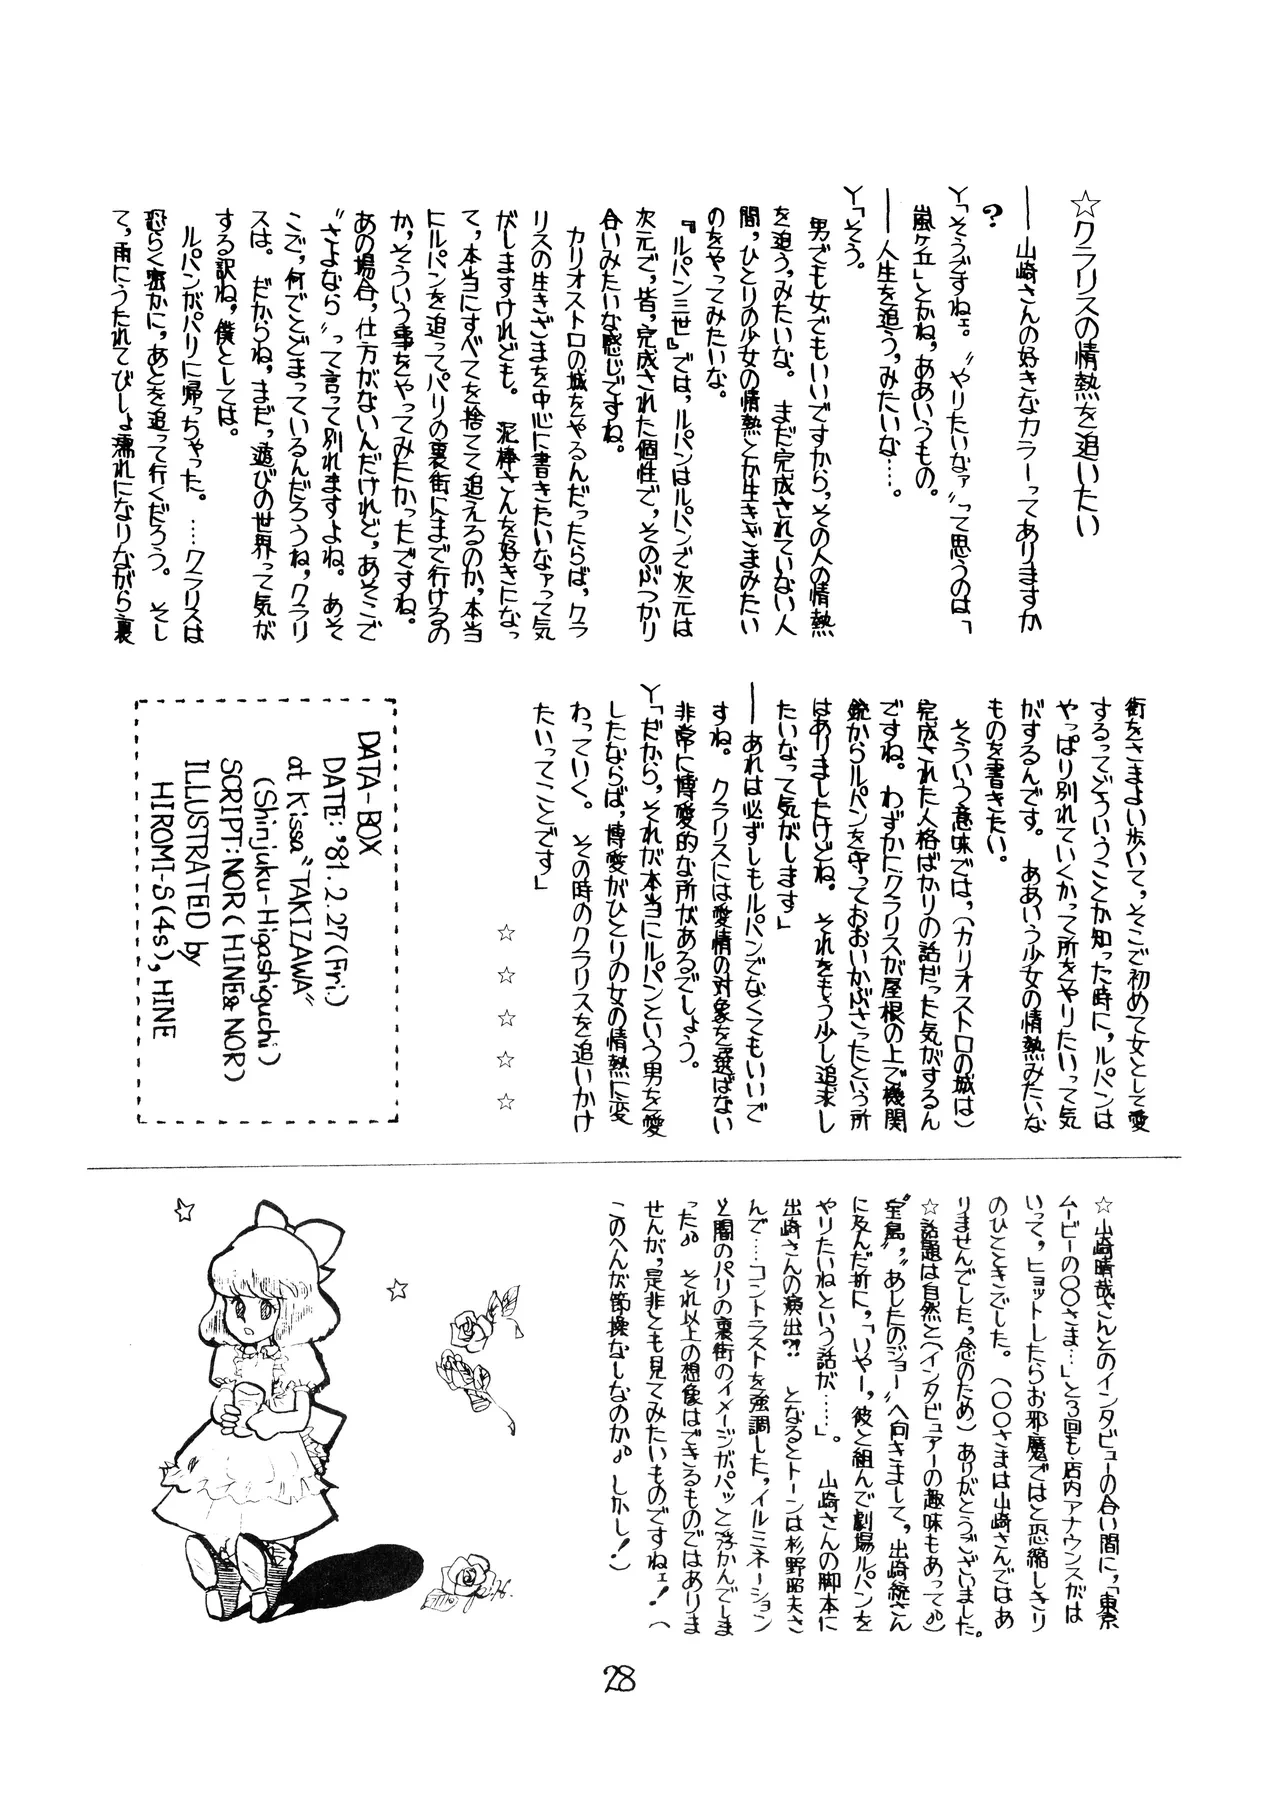 ☆クラリスの情熱を追いたい
――山崎さんの好きなカラーってありますか
?
Y「そうですねェ。〝やりたいなァ〟って思うのは「
嵐ヶ丘」とかね，ああいうもの。
――人生を追う，みたいな……。
Y「そう。
男でも女でもいいですから，その人の情熱
を追う，みたいな。まだ完成されていない人
間，ひとりの少女の情熱とか生きざまみたい
のをやってみたいな。
『ルパン三世』では，ルパンはルパンで次元は
次元で，皆，完成された個性で，そのぶつかり
合いみたいな感じですね。
カリオストロの城をやるんだったらば，クラ
リスの生きざまを中心に書きたいなァって気
がしますけれども。泥棒さんを好きになっ
て，本当にすべてを捨てて追えるのか，本当
にルパンを追ってパリの裏街にまで行けるの
か，そういう事をやってみたかったですね。
あの場合，仕方がないんだけれど，あそこで
〝さよなら〟って言って別れますよね。あそ
こで，何でとどまっているんだろうね，クラリ
スは。だからね，まだ，遊びの世界って気が
する訳ね，僕としては。
ルパンがパリに帰っちゃった。……クラリスは
恐らく密かに，あとを追って行くだろう。そし
て，雨にうたれてびしょ濡れになりながら裏
街をさまよい歩いて，そこで初めて女として愛
するってどういうことか知った時に，ルパンは
やっぱり別れていくかって所をやりたいって気
がするんです。ああいう少女の情熱みたいな
ものを書きたい。
そういう意味では，（カリオストロの城は）
完成された人格ばかりの話だった気がするん
ですね。わずかにクラリスが屋根の上で機関
銃からルパンを守っておおいかぶさったという所
はありましたけどね。それをもう少し追求し
たいなって気がします」
――あれは必ずしもルパンでなくてもいいで
すね。クラリスには愛情の対象を選ばない
非常に博愛的な所があるでしょう。
Y「だから，それが本当にルパンという男を愛
したならば，博愛がひとりの女の情熱に変
わっていく。その時のクラリスを追いかけ
たいってことです」
☆ ☆ ☆ ☆ ☆
DATA-BOX
DATE:'81.2.27(Fri.)
at Kissa"TAKIZAWA"
(Shinjuku-Higashiguchi)
SCRIPT:NOR(HINE&NOR)
ILLUSTRATED by
HIROMI-S(4s),HINE
☆山崎晴哉さんとのインタビューの合い間に，「東京
ムービーの〇〇さま…」と3回も店内アナウンスがは
いって，ヒョットしたらお邪魔ではと恐縮しきり
のひとときでした。（〇〇さまは山崎さんではあ
りませんでした，念のため）ありがとうございました。
☆話題は自然と（インタビュアーの趣味もあって♪）
〝宝島〟〝あしたのジョー〟へ向きまして，出崎統さん
に及んだ折に，「いやー，彼と組んで劇場ルパンを
やりたいねという話が……」。山崎さんの脚本に
出崎さんの演出?! となるとトーンは杉野昭夫さ
んで……コントラストを強調した，イルミネーション
と闇のパリの裏街のイメージがパッと浮かんでしま
った♪ それ以上の想像はできるものではありま
せんが，是非とも見てみたいものですねェ！（
このへんが節操なしなのか♪ しかし！）
28